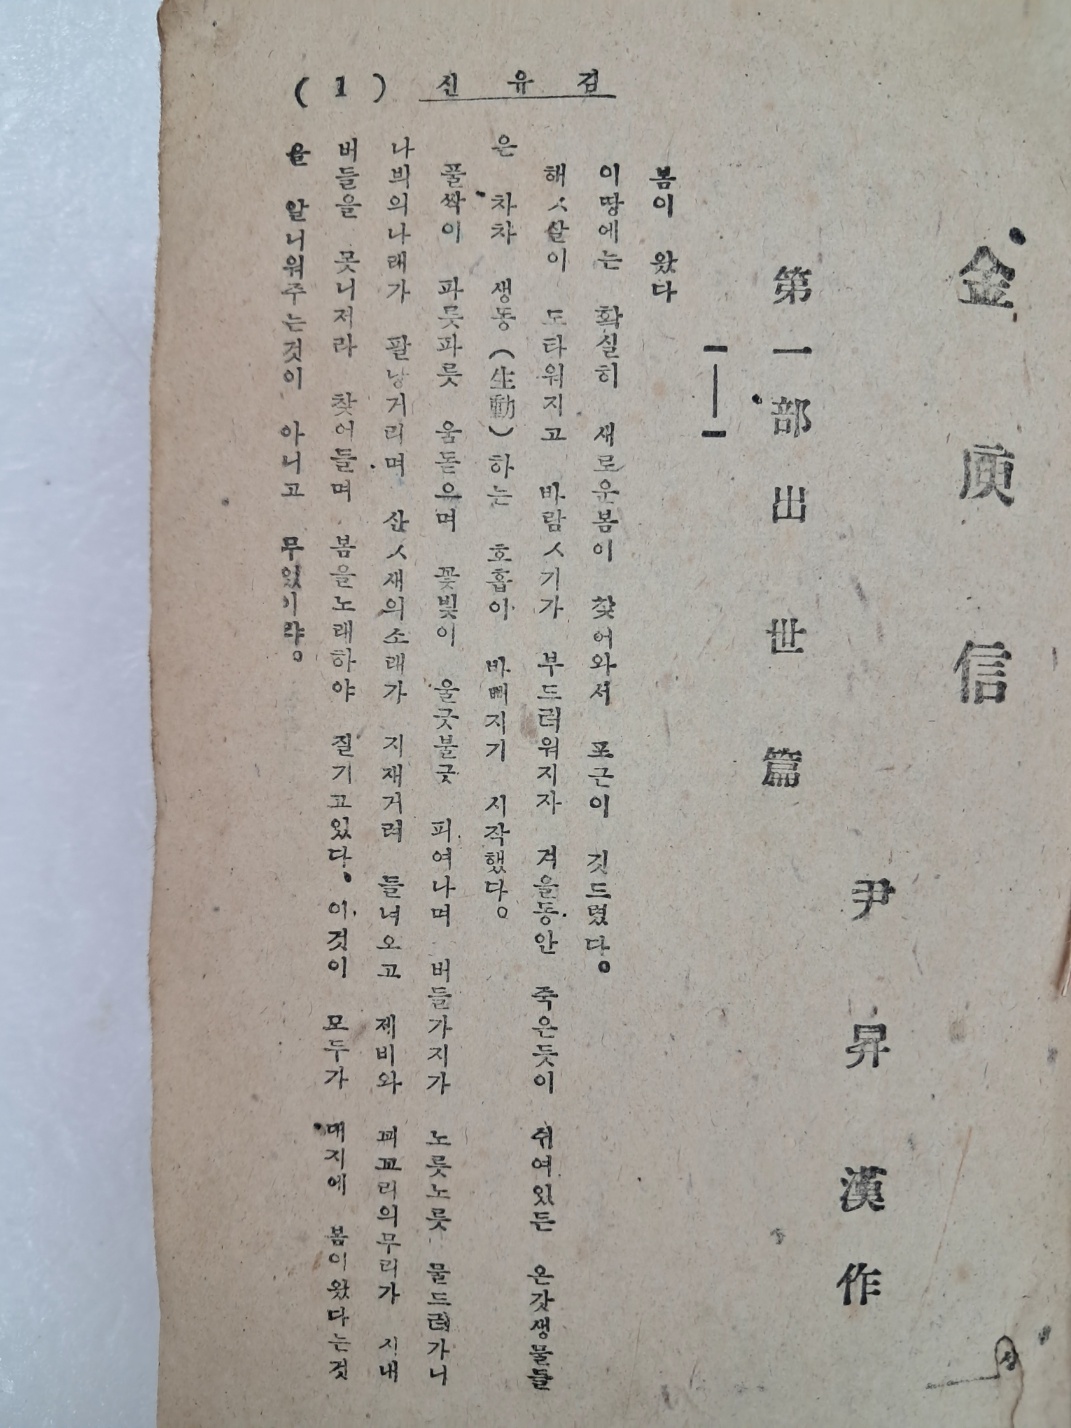 金庾信
尹昇漢作
第一部 出世篇
一
봄이 왔다
이땅에는 확실히 새로운봄이 찾어와서 포근이 깃드렸다。
해ㅅ살이 도타워지고 바람ㅅ기가 부드러워지자 겨을동안 죽은듯이 쉬여있든 온갓생물들
은 차차 생동(生動)하는 호흡이 바뻐지기 시작했다。
풀싹이 파릇파릇 움돋으며 꽃빛이 울긋불긋 피여나며 버들가지가 노릇노릇 물드러가니
나븨의나래가 팔낭거리며 산ㅅ새의소래가 지재거려 들녀오고 제비와 꾀꼬리의무리가 시내
버들을 못니저라 찾어들며 봄을노래하야 질기고있다、이것이 모두가 대지에 봄이왔다는것
을 알니워주는것이 아니고 무엇이랴。
김유신 (1)